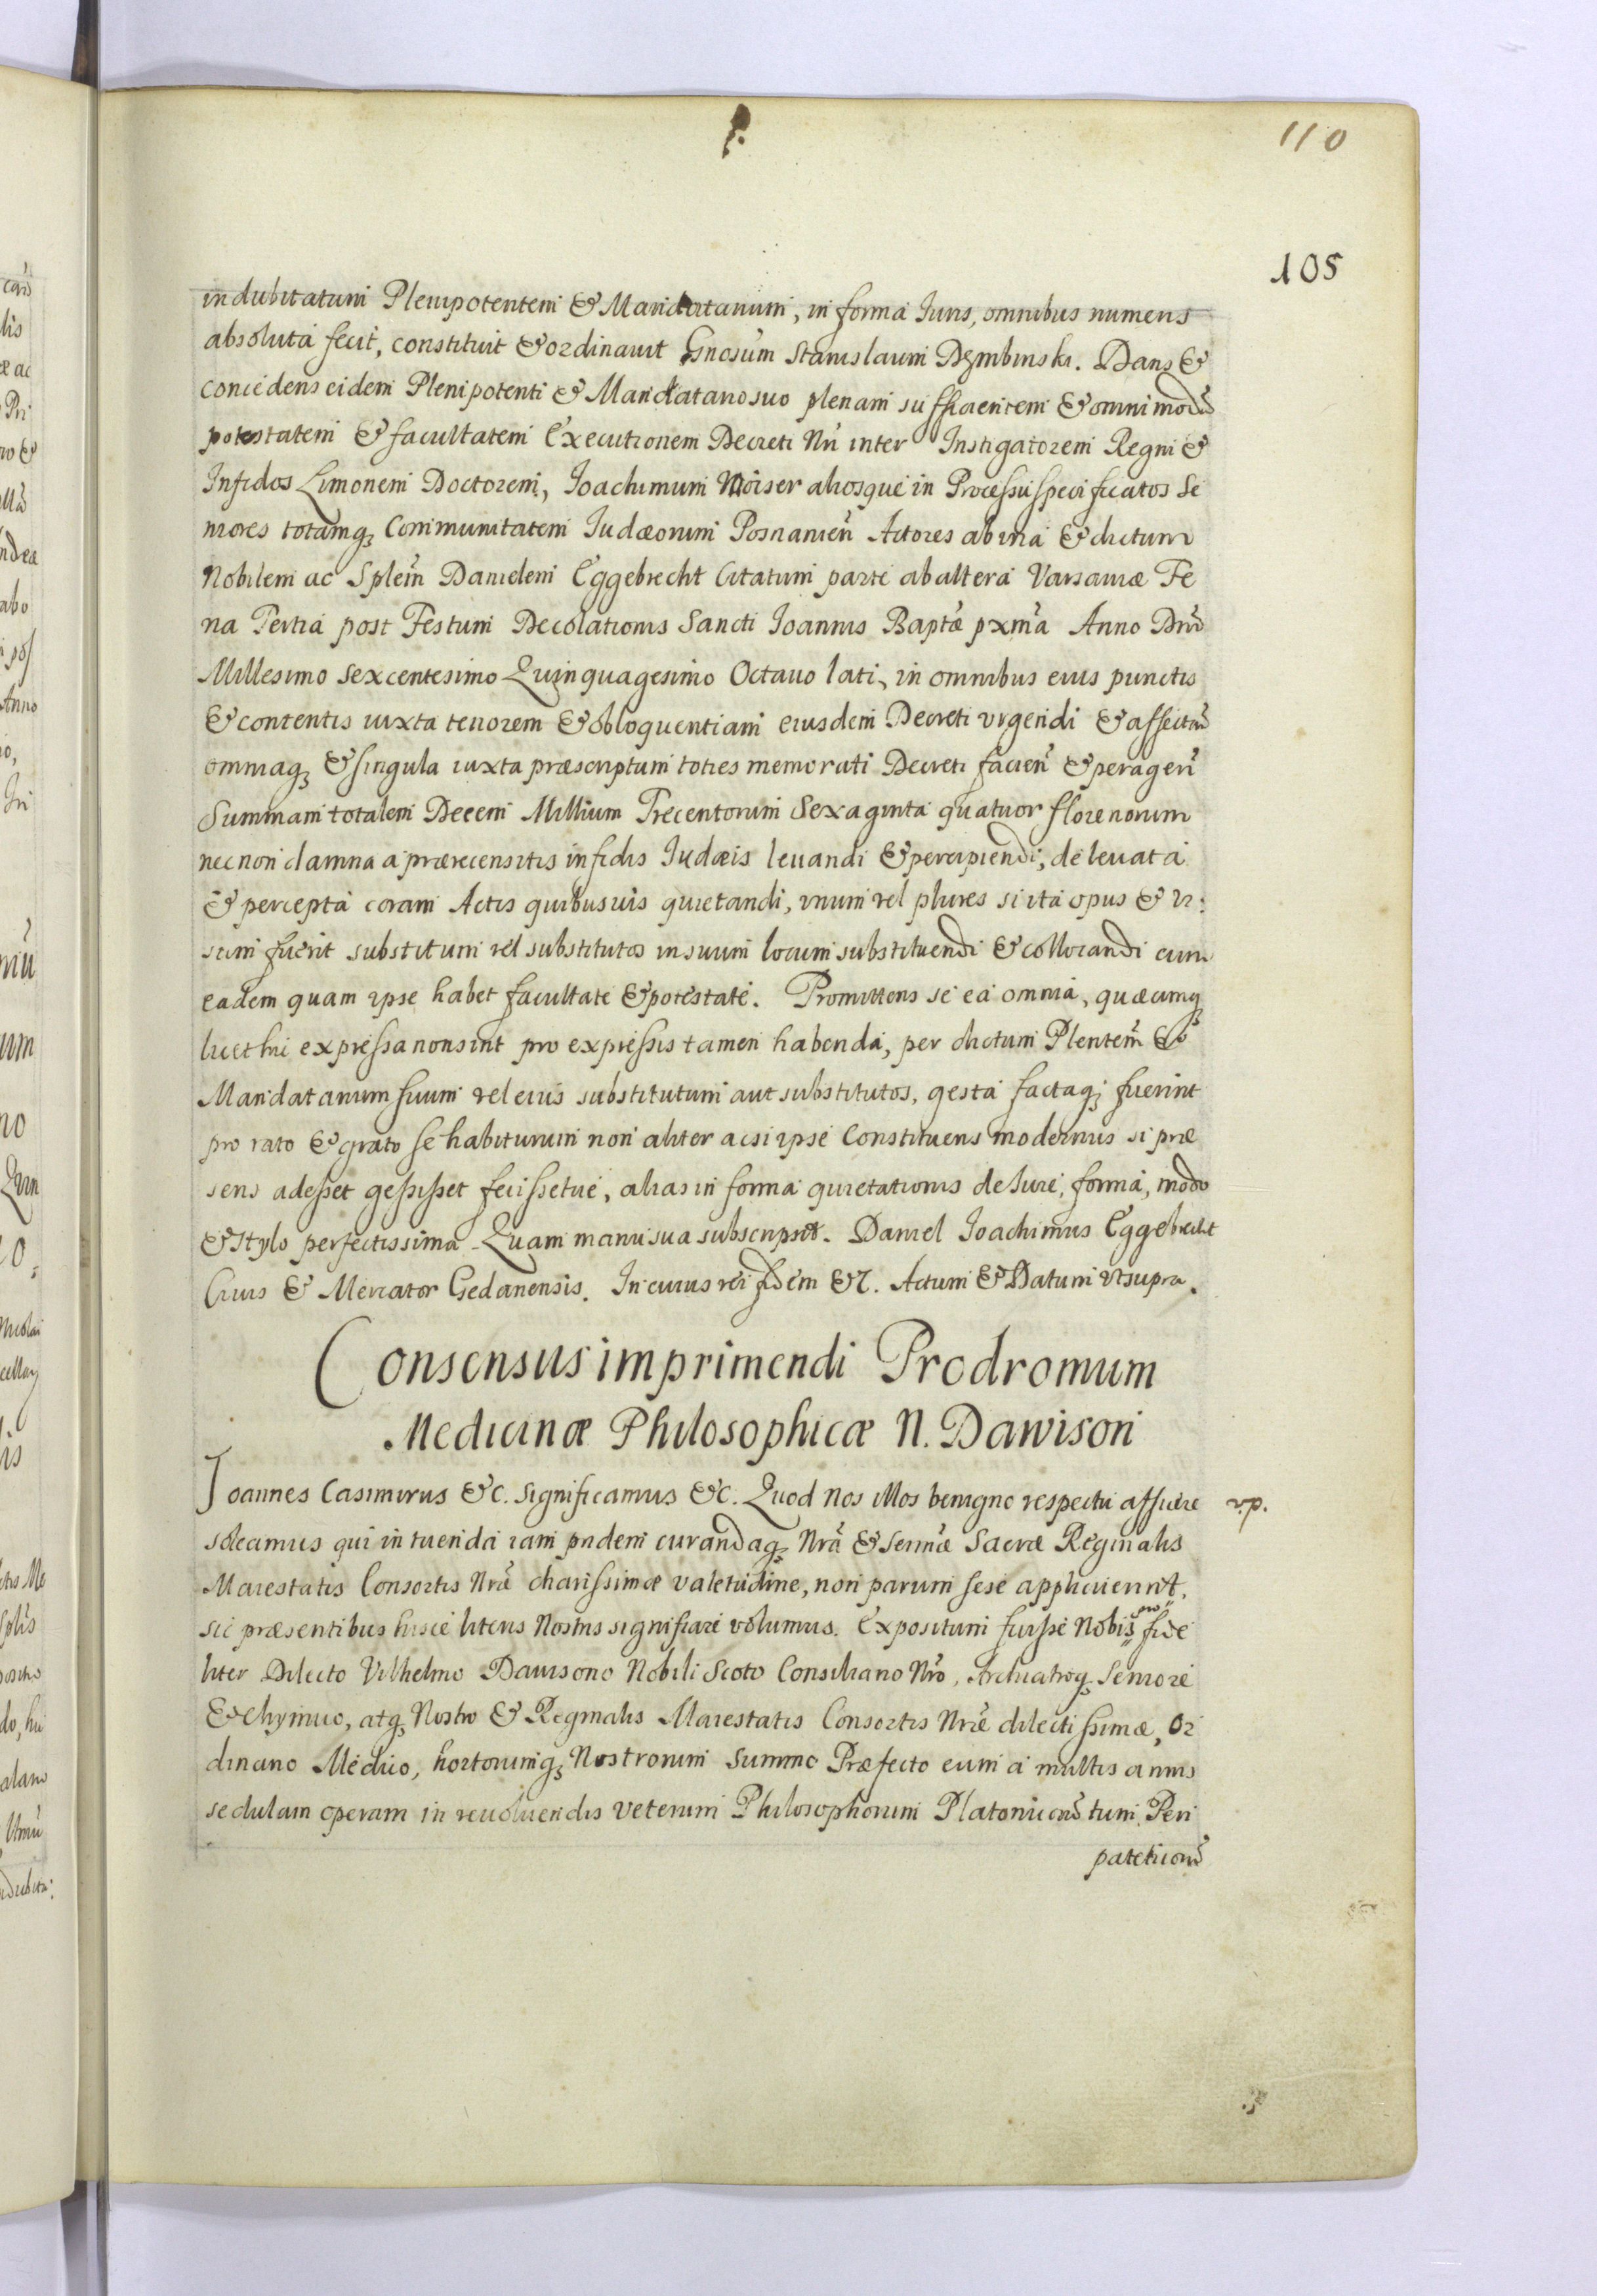 110
105
indubitatum Plenipotentem & Mandatarium, in forma Iuris, omnibus numeris
absoluta fecit, constituit & ordinauit Gnosum Stanislaum Dembinski. Dans &
concedens eidem Plenipotenti & Mandatario suo plenam sufficientem & omnimodã
potestatem & facultatem Executionem Decreti Nri inter Instigatorem Regni &
Infidos Limonem Doctorem, Ioachimum Moiser aliosque in Processu specificatos Se
niores totamq3 Communitatem Iudæorum Posnanień Actores ab una & dictum
Nobilem ac Spleñ Danielem Eggebrecht Citatum parte ab altera Varsauiæ Fe
ria Tertia post Festum Decolationis Sancti Ioannis Baptæ pxma Anno Dñi
Millesimo Sexcentesimo Quinquagesimo Octauo lati, in omnibus eius punctis
& contentis iuxta tenorem & obloquentiam eiusdem Decreti vrgendi &
omniaq3 & singula iuxta præscriptum toties memorati Decreti facień & perageń
Summam totalem Decem Millium Trecentorum Sexaginta quatuor florenorum
nec non damna a prærecensitis infidis Iudæis leuandi & percipiendi, de leuata
& percepta coram Actis quibusuis quietandi, vnum vel plures si ita opus & vi:
sum fuerit substitutum vel substitutos in suum locum substituendi & collocandi cum
eadem quam ipse habet facultate & potestate. Promittens se ea omnia, quæcumq3
licet hic expressa non sint pro expressis tamen habenda, per dictum Plentem &
Mandatarium suum vel eius substitutum aut substitutos, gesta factaq3 fuerint
pro rato & grato se habiturum non aliter acsi ipse Constituens modernus si præ
sens adesset gessisset fecissetue, alias in forma quietationis de Iure, forma, modo
& stylo perfectissima. Quam manu sua subscripsit. Daniel Ioachimus Eggebrecht
Ciuis & Mercator Gedanensis. In cuius rei fidem &c. Actum & Datum vt supra.
Consensus imprimendi Prodromum
Medicinæ Philosophicæ N. Dawison
Ioannes Casimirus &c. Significamus &c. Quod Nos illos benigno respectu
v.p.
soleamus qui in tuenda iam pridem curandaq3 Nrã & Sermæ Sacræ Reginalis
Maiestatis Consortis Nræ charissimæ valetudine, non parum sese applicuerint,
sic præsentibus hisce literis Nostris significare volumus. Expositum fuisse Nobis pro fide
liter Dilecto Vilhelmo Dauisono Nobili Scoto Consiliario Nro, Archiatroq3 Seniore
& Chymico, atq3 Nostro & Reginalis Maiestatis Consortis Nræ dilectissimæ, Or
dinario Medico, hortorumq3 Nostrorum Summo Præfecto eum a multis annis
sedulam operam in reuoluendis veterum Philosophorum Platonicorũ tum Peri
pateticorũ